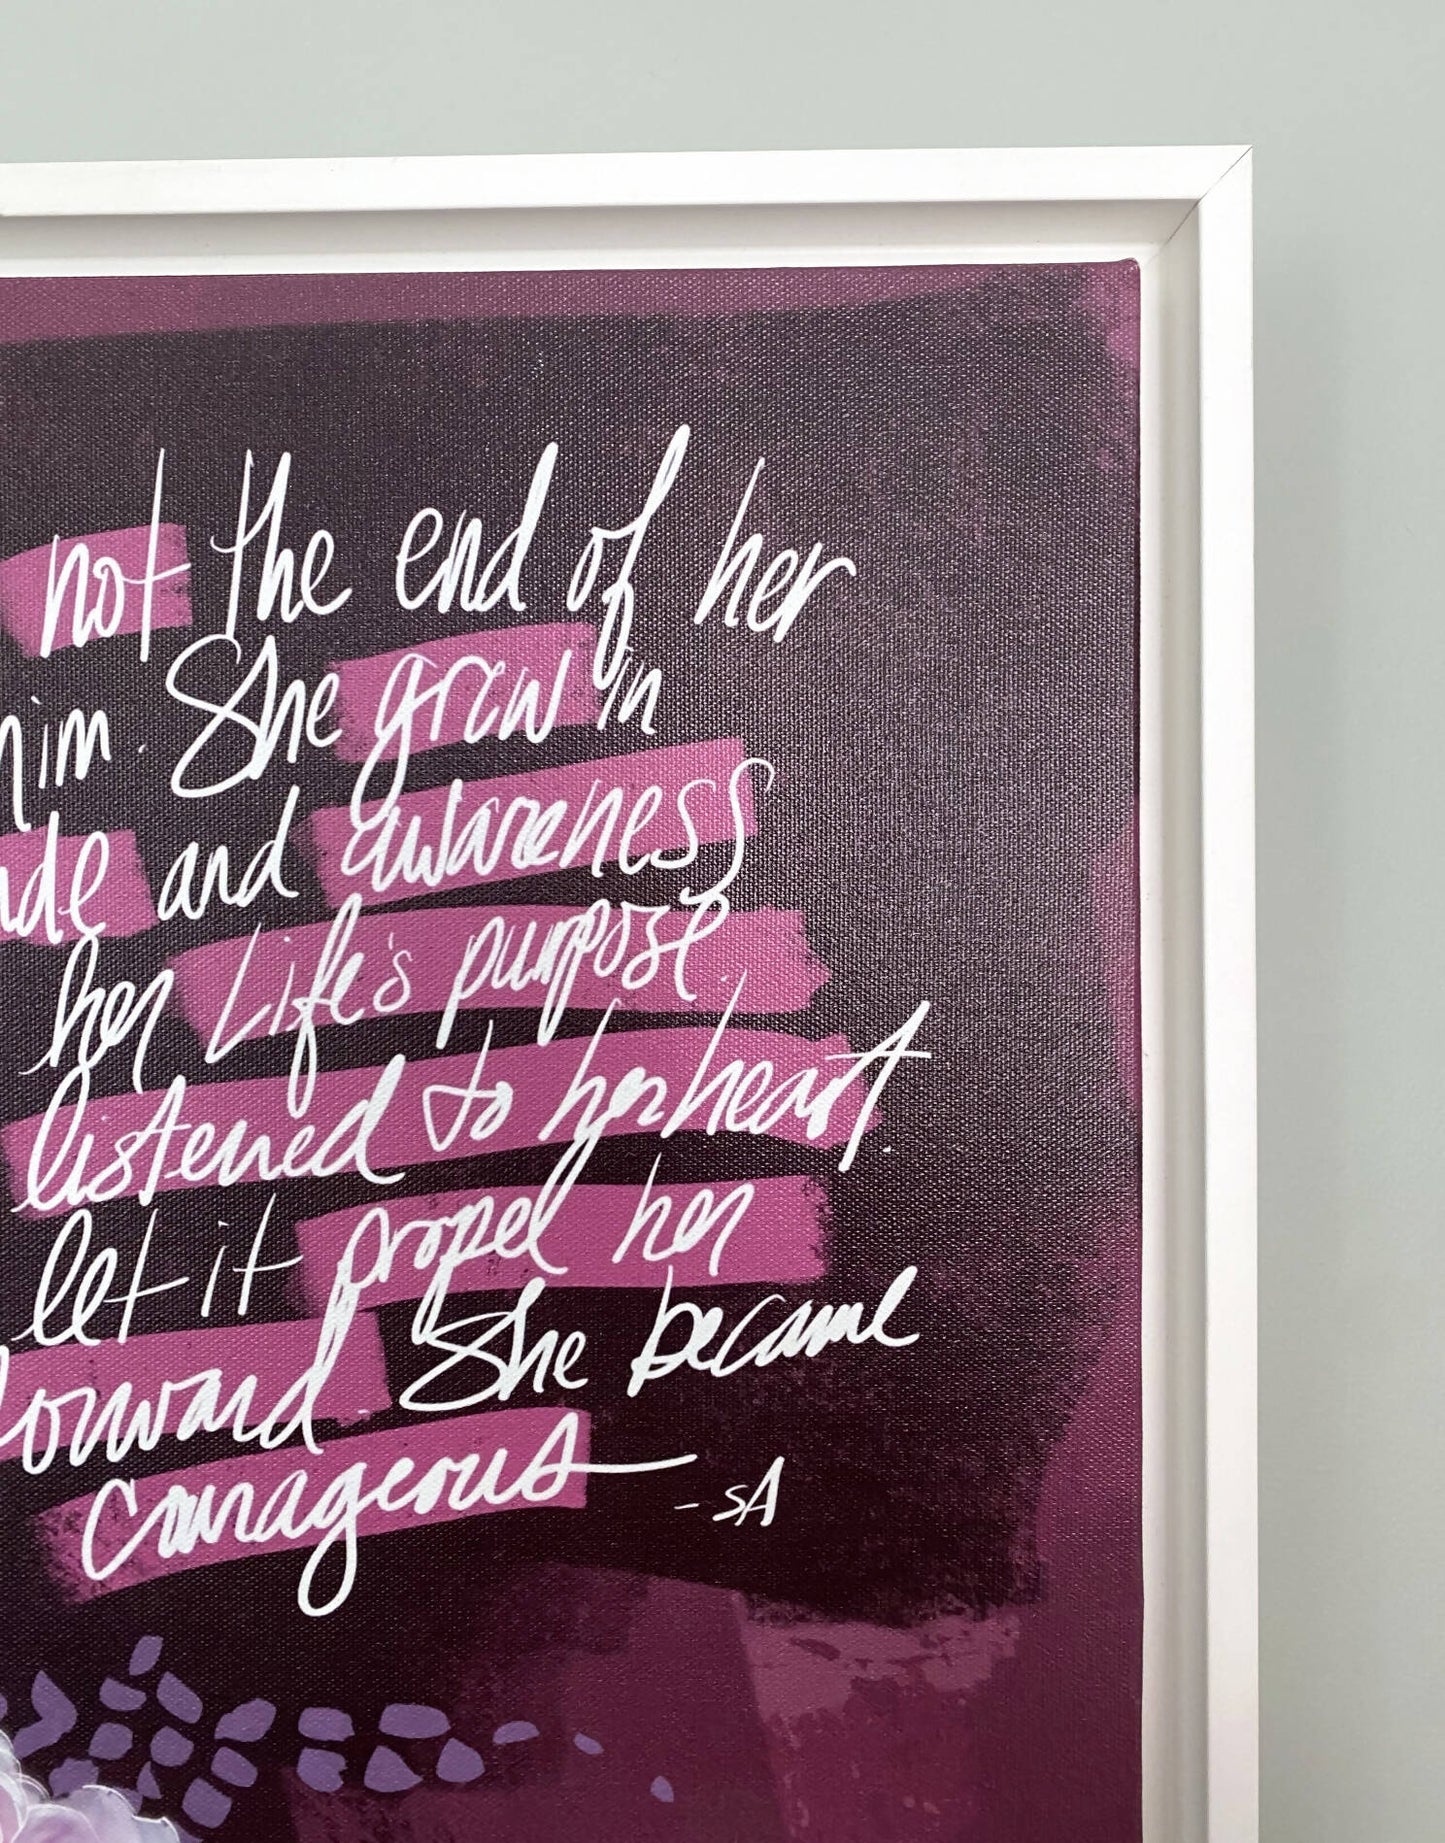 not the end of her
him. She grew in
and awareness
her Life's purpose.
listened to her heart.
let it propel her
forward. She became
Courageous
- SA